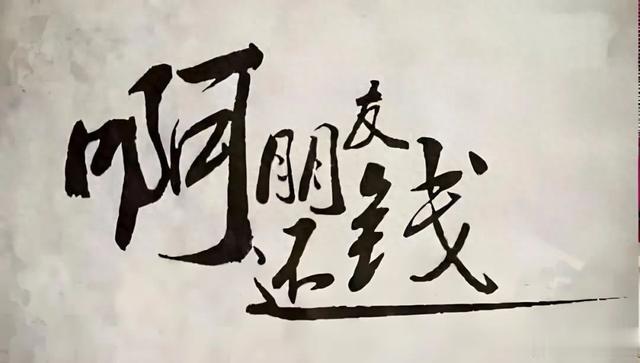 啊朋友还钱